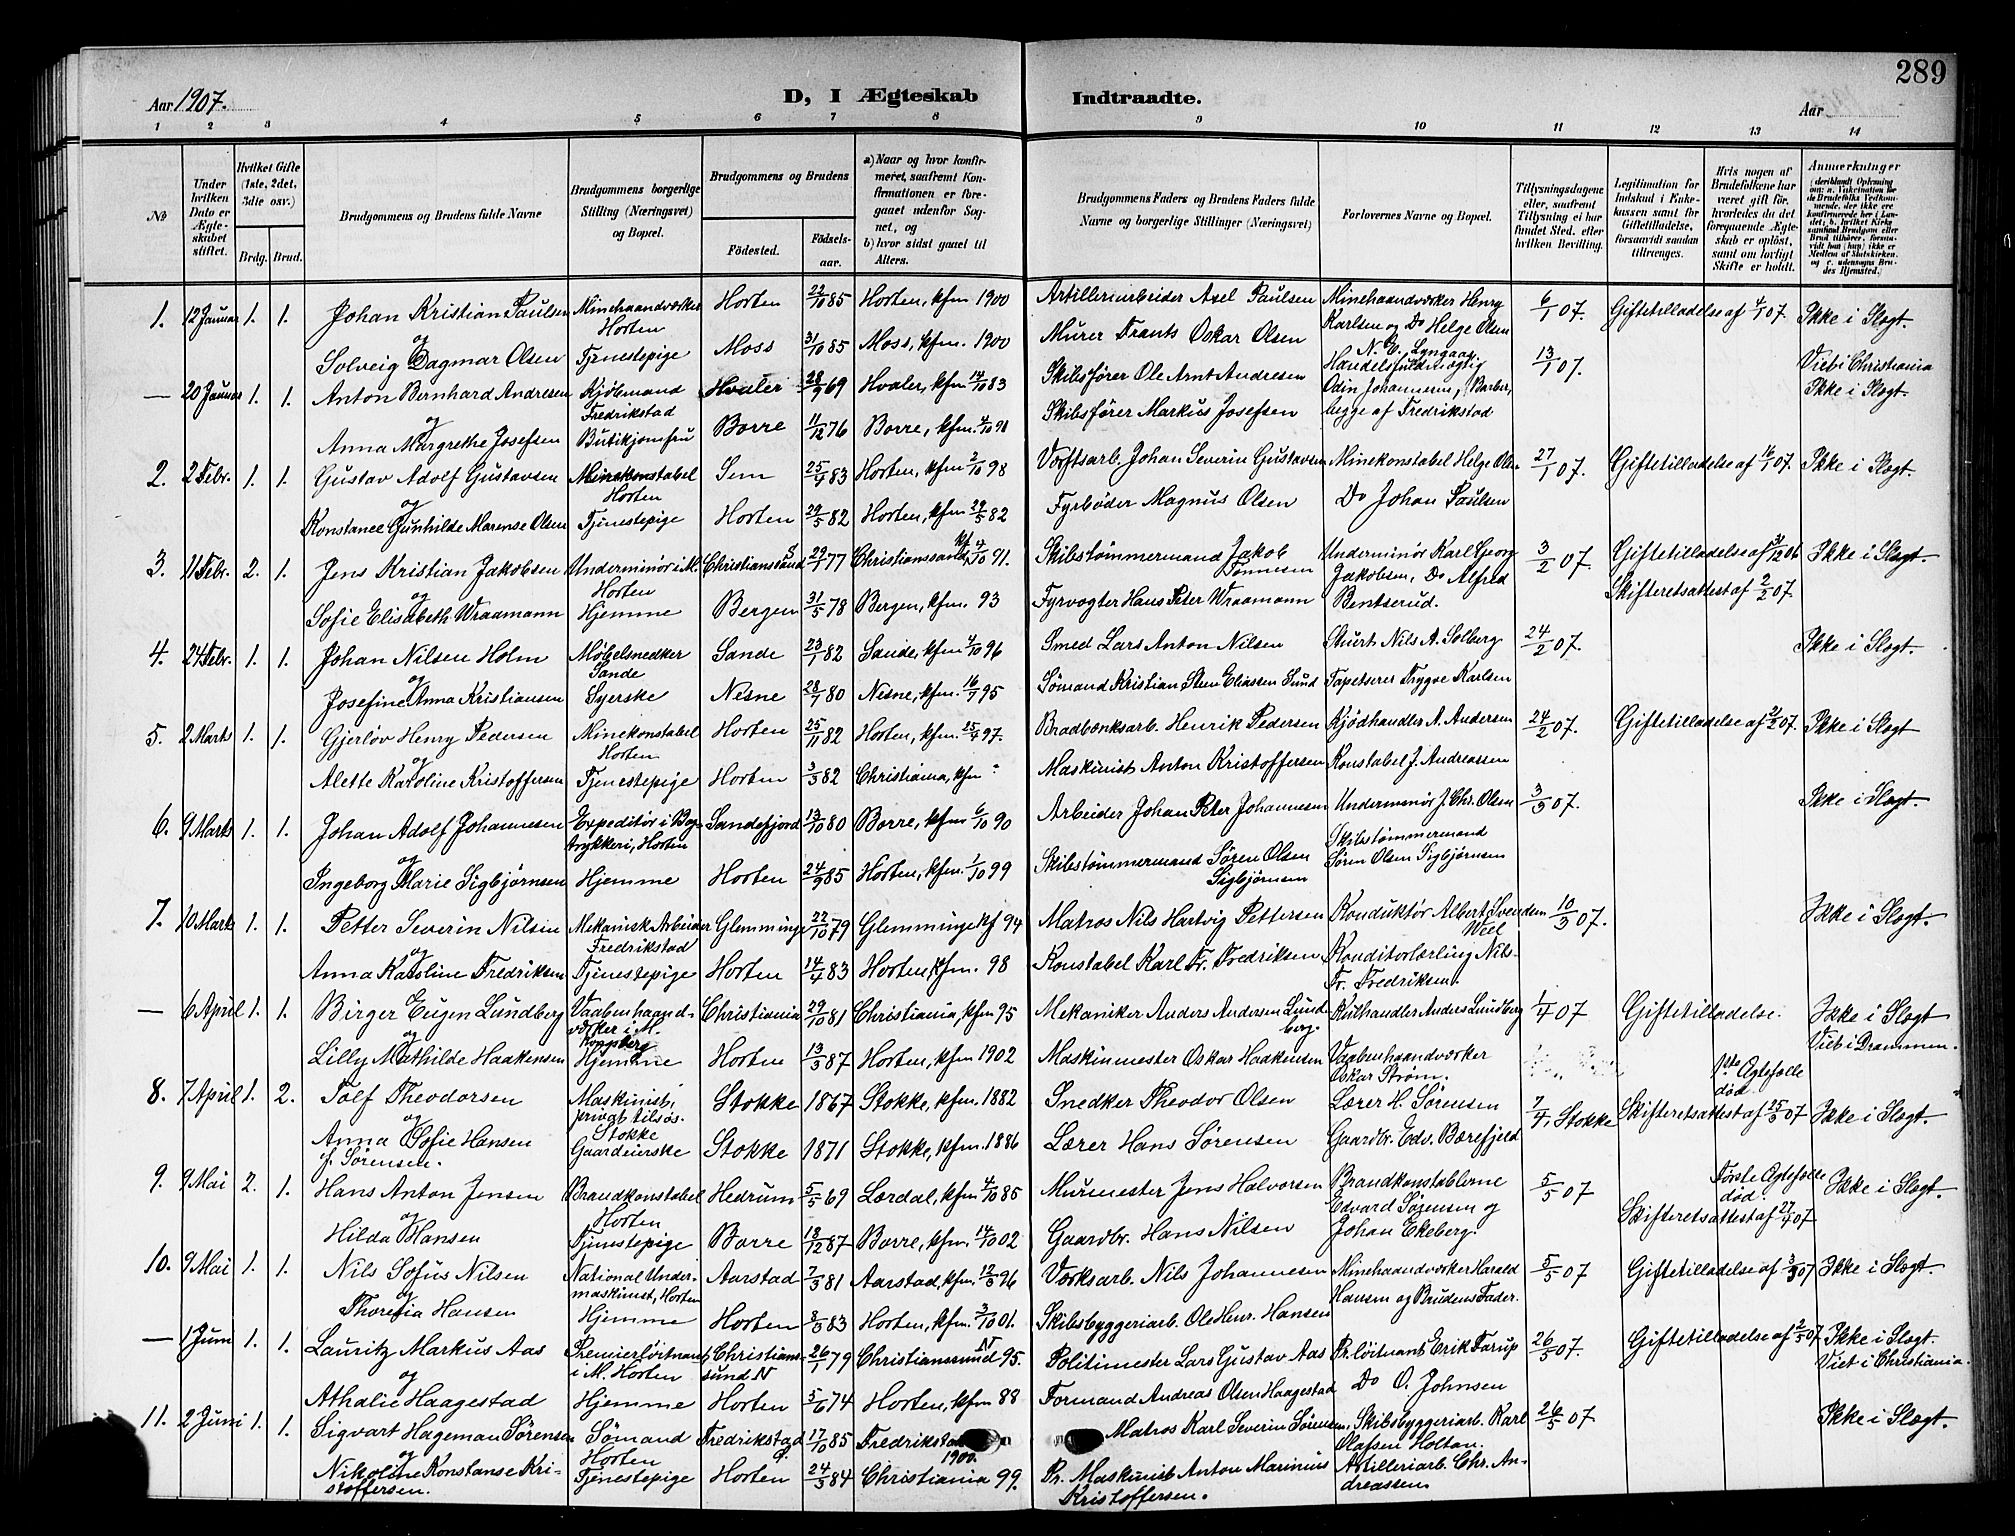 289
Aar 1907.
D, I Ægteskab Indtraadte.
Aar
1 2 3 4 5 6 7 8 9 10 11 12 13 14
No
Under hvilken Dato er Ægteskabet stiftet.
Hvilket Gifte (1ste, 2det, 3die osv.)
Brdg. Brud.
Brudgommens og Brudens fulde Navne
Brudgommens borgerlige Stilling (Næringsvei) og Bopæl.
Brudgommens og Brudens
Fødested. Fødselsaar.
a) Naar og hvor konfirmeret, saafremt Konfirmationen er foregaaet udenfor Sognet, og
b) hvor sidst gaaet til Alters.
Brudgommens Faders og Brudens Faders fulde Navne og borgerlige Stillinger (Næringsvei)
Forlovernes Navne og Bopæl.
Tillysningsdagene eller, saafremt Tillysning ei har fundet Sted, efter hvilken Bevilling.
Legitimation for Indskud i Enkekassen samt for Giftetilladelse, forsaavidt saadan tiltrænges.
Hvis nogen af Brudefolkene har været gift før, hvorledes da det foregaaende Ægteskab er opløst, samt om lovligt Skifte er holdt.
Anmerkninger
1. 12 Januar 1. 1. Johan Kristian Paulsen Minehaandværker Horten Horten 22/10 85 Horten, kfm 1900 Artilleriarbeider Axel Paulsen Minehaandværker Henry Karlsen og Do Helge Olsen 6/1 07. Giftetilladelse af 4/1 07. Ikke i Slægt.
og
Solveig Dagmar Olsen Tjenestepige Moss 31/10 85 Moss, kfm. 1900 Murer Frants Oskar Olsen
— 20 Januar 1. 1. Anton Bernhard Andresen Kjøbmand Fredrikstad Hvaler 28/9 69 Hvaler, kfm 14/10 83 Skibsfører Ole Arnt Andresen N. C. Lyngaas, Handelsfuldmægtig Odin Johannesen, Barber, begge af Fredrikstad 13/1 07. Viet i Christiania Ikke i Slægt.
og
Anna Margrethe Josefsen Butikjomfru Borre 11/12 76 Borre, kfm. 4/10 91 Skibsfører Markus Josefsen
2. 2 Febr. 1. 1. Gustav Adolf Gustavsen Minekonstabel Horten Sem 25/4 83 Horten, kfm 2/10 98 Værftsarb. Johan Severin Gustavsen Minekonstabel Helge Olsen 27/1 07. Giftetilladelse af 16/1 07. Ikke i Slægt.
og
Konstance Gunhilde Marense Olsen Tjenestepige Horten 29/5 82 Horten, kfm 29/5 82 Fyrbøder Magnus Olsen Do Johan Paulsen
3. 11 Febr. 2. 1. Jens Kristian Jakobsen Underminør i M. Horten Christianssand S 29/1 77 Christianssand, kf. 4/10 91. Skibstømmermand Jakob Tønnesen Underminør Karl Georg Jakobsen, Do Alfred Bentserud. 3/2 07. Giftetilladelse af 31/12 06 Skifteretsattest af 2/2 07. Ikke i Slægt.
og
Sofie Elisabeth Wraamann Hjemme Bergen 31/5 78 Bergen, kfm. 93 Fyrvogter Hans Peter Wraamann
4. 24 Febr. 1. 1. Johan Nilsen Holm Møbelsnedker Sande Sande 23/1 82 Sande, kfm 4/10 96 Smed Lars Anton Nilsen Sturt. Nils A. Solberg 24/2 07. Ikke i Slægt.
og
Josefine Anna Kristiansen Syerske Nesne 28/7 80 Nesne, kfm. 16/7 95 Sømand Kristian Sten Eliassen Sund Tapetserer Trygve Karlsen
5. 2 Marts 1. 1. Gjerløv Henry Pedersen Minekonstabel Horten Horten 25/11 82 Horten, kfm. 25/4 97. Bradbænksarb. Henrik Pedersen Kjødhandler A. Andersen 24/2 07. Giftetilladelse af 2/3 07. Ikke i Slægt
og
Alette Karoline Kristoffersen Tjenestepige Horten 3/3 82 Christiania, kfm Maskinist Anton Kristoffersen Konstabel J. Andreassen
6. 9 Marts 1. 1. Johan Adolf Johannesen Expeditør i Bogtrykkeri, Horten Sandefjord 13/10 80 Borre, kfm 6/10 90 Arbeider Johan Peter Johannesen Underminør J. Chr. Olsen 3/3 07. Ikke i Slægt.
og
Ingeborg Marie Sigbjørnsen Hjemme Horten 24/9 85 Horten, kfm. 1/10 99 Skibstømmermand Søren Olsen Sigbjørnsen Skibstømmermand Søren Olsen Sigbjørnsen
7. 10 Marts 1. 1. Petter Severin Nilsen Mekanisk Arbeider Fredrikstad Glemminge 22/10 79 Glemminge kf 94 Matros Nils Hartvig Pettersen Konduktør Albert Svendsen Weel 10/3 07. Ikke i Slægt.
og
Anna Karoline Fredriksen Tjenestepige Horten 14/4 83 Horten, kfm. 98 Konstabel Karl Fr. Fredriksen Konditorlærling Nils Fr. Fredriksen.
— 6 April 1. 1. Birger Eugen Lundberg Vaabenhaandværker i M. Kongsberg Christiania 29/10 81 Christiania, kfm 95 Mekaniker Anders Andersen Lundberg. Kulhandler Anders Lundberg 1/4 07 Giftetilladelse. Ikke i Slægt Viet i Drammen.
og
Lilly Mathilde Haakensen Hjemme Horten 13/3 87 Horten, kfm. 1902 Maskinmester Oskar Haakensen Vaabenhaandværker Oskar Strøm.
8. 7 April 1. 2. Tolf Theodorsen Maskinist, privat tilsøs. Stokke Stokke 1867 Stokke, kfm. 1882 Snedker Theodor Olsen Lærer H. Sørensen 7/4, Stokke Skifteretsattest af 25/3 07 1ste Ægtefælle død. Ikke i Slægt.
og
Anna Sofie Hansen f. Sørensen. Gaardeierske Stokke 1871 Stokke, kfm. 1886 Lærer Hans Sørensen Gaardbr. Edv. Bærefjeld
9. 9 Mai 2. 1. Hans Anton Jensen Brandkonstabel Horten Hedrum 5/5 69 Lærdal, kfm 4/10 85 Murmester Jens Halvorsen Brandkonstablerne Edvard Sørensen og Johan Ekeberg. 5/5 07 Skifteretsattest af 27/4 07 Første Ægtefælle død Ikke i Slægt.
og
Hilda Hansen Tjenestepige Borre 18/12 87 Borre, kfm. 14/10 02 Gaardbr. Hans Nilsen
10. 9 Mai 1. 1. Nils Sofus Nilsen National Undermaskinist, Horten Aarstad 7/3 81 Aarstad, kfm. 12/3 96 Værksarb. Nils Johannesen Minehaandværker Harald Hansen og Brudens Fader. 5/5 07 Giftetilladelse af 3/3 07 Ikke i Slægt.
og
Theresia Hansen Hjemme Horten 8/3 83 Horten, kfm. 3/10 01. Skibsbyggeriarb. Ole Henr. Hansen
— 1 Juni 1. 1. Lauritz Markus Aas Premierløitnant i M. Horten Christianssund N 26/1 79 Christianssund N 95. Politimester Lars Gustav Aas Pr. løitnant Erik Tarup 26/5 07. Giftetilladelse af 2/5 07 Ikke i Slægt. Viet i Christiania.
og
Athalie Haagestad Hjemme Horten 5/6 74 Horten, kfm 88 Formand Andreas Olsen Haagestad Do O. Johnsen
11. 2 Juni 1. 1. Sigvart Hageman Sørensen Sømand Horten Fredrikstad 17/10 85 Fredrikstad 1900. Matros Karl Severin Sørensen, Skibsbyggeriarb. Karl Olafsen Holtan. 26/5 07. Ikke i Slægt.
og
Nikoline Konstanse Kristoffersen. Tjenestepige Horten 24/3 84 Christiania 99. Pr. Maskinist Anton Marinius Kristoffersen. Artilleriarb. Chr. Andreassen.